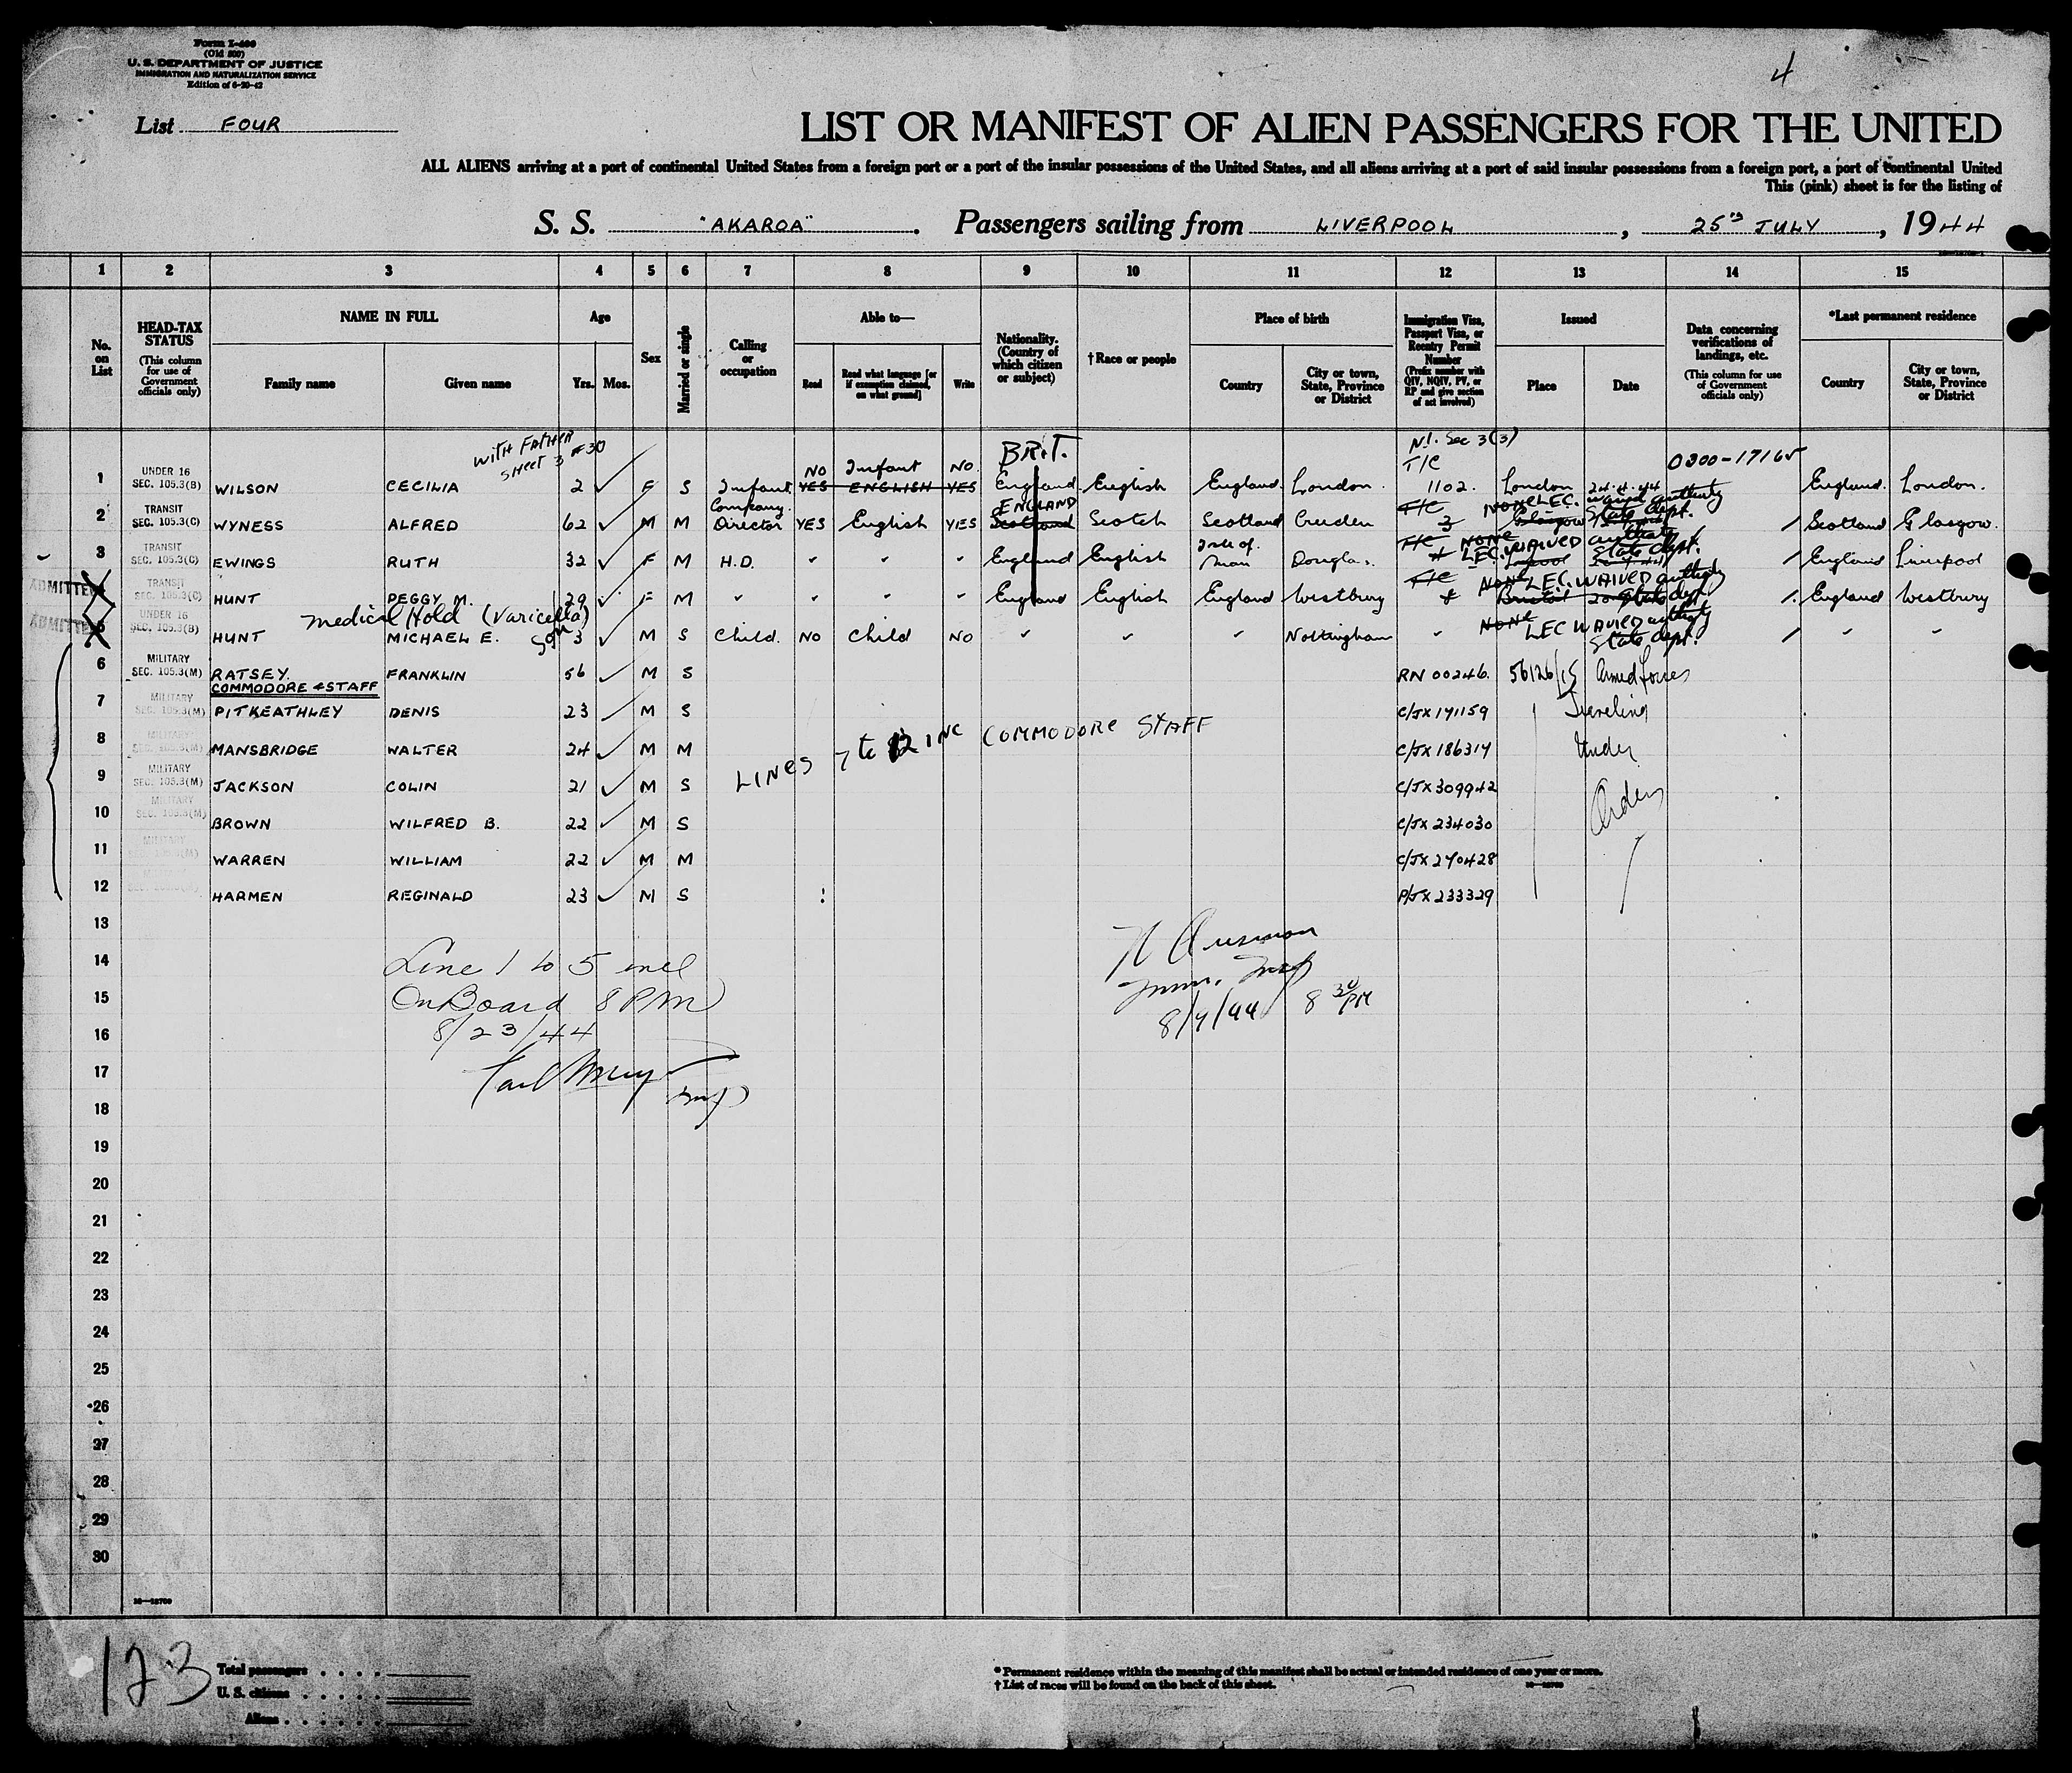 Form I-400
(Old 500)
U. S. DEPARTMENT OF JUSTICE
IMMIGRATION AND NATURALIZATION SERVICE
Edition of 6-20-42
4
List FOUR
LIST OR MANIFEST OF ALIEN PASSENGERS FOR THE UNITED
ALL ALIENS arriving at a port of continental United States from a foreign port or a port of the insular possessions of the United States, and all aliens arriving at a port of said insular possessions from a foreign port, a port of continental United
This (pink) sheet is for the listing of
S. S. "AKAROA". Passengers sailing from LIVERPOOL, 25TH JULY, 1944
1 2 3 4 5 6 7 8 9 10 11 12 13 14 15
No. on List
HEAD-TAX STATUS (This column for use of Government officials only)
NAME IN FULL
Family name Given name
Age
Yrs. Mos.
Sex
Married or single
Calling or occupation
Able to—
Read Read what language [or if exemption claimed, on what ground] Write
Nationality. (Country of which citizen or subject)
†Race or people
Place of birth
Country City or town, State, Province or District
Immigration Visa, Passport Visa, or Reentry Permit Number (Prefix number with QIV, NQIV, PV, or RP and give section of act involved)
Issued
Place Date
Data concerning verifications of landings, etc. (This column for use of Government officials only)
*Last permanent residence
Country City or town, State, Province or District
WITH FATHER SHEET 3 #30
BRIT.
N.I. Sec 3(3)
T/C
0300-17165
NO Infant NO
1 UNDER 16 SEC. 105.3(B) WILSON CECILIA 2 F S Infant YES ENGLISH YES England English England London 1102. London 24.4.44 England. London.
Company ENGLAND T/C NONE LEC. waived authority
2 TRANSIT SEC. 105.3(C) WYNESS ALFRED 62 M M Director YES English YES Scotland Scotch Scotland Cruden 3 Glasgow State dept. Scotland Glasgow.
Isle of T/C NONE LEC. WAIVED authority
3 TRANSIT SEC. 105.3(C) EWINGS RUTH 32 F M H.D. " " " England English Man Douglas. State dept. England Liverpool
ADMITTED T/C NONE LEC. WAIVED authority
4 TRANSIT SEC. 105.3(C) HUNT PEGGY M. 29 F M " " " " England English England Westbury Bristol State dept England Westbury
medical Hold (Varicella)
ADMITTED NONE LEC WAIVED authority
5 UNDER 16 SEC. 105.3(B) HUNT MICHAEL E. son 3 M S Child. NO Child NO " " " Nottingham " State dept. " "
6 MILITARY SEC. 105.3(M) RATSEY. FRANKLIN 56 M S RN 00246. 56126/15 Armed forces
COMMODORE & STAFF
7 MILITARY SEC. 105.3(M) PITKEATHLEY DENIS 23 M S C/JX 171159 Traveling
LINES 7 to 12 INC COMMODORE STAFF
8 MILITARY SEC. 105.3(M) MANSBRIDGE WALTER 24 M M C/JX 186317 Under
9 MILITARY SEC. 105.3(M) JACKSON COLIN 21 M S C/JX 309942
10 MILITARY SEC. 105.3(M) BROWN WILFRED B. 22 M S C/JX 234030 Orders
11 MILITARY WARREN WILLIAM 22 M M C/JX 270428
12 HARMEN REGINALD 23 M S P/JX 233329
13
14
15
16
17
18
19
20
21
22
23
24
25
26
27
28
29
30
Line 1 to 5 incl
On Board 8 PM
8/23/44
Insp
Imm. Insp
8/7/44 8 30 PM
16—28700
123
Total passengers
U. S. citizens
Aliens
* Permanent residence within the meaning of this manifest shall be actual or intended residence of one year or more.
† List of races will be found on the back of this sheet.